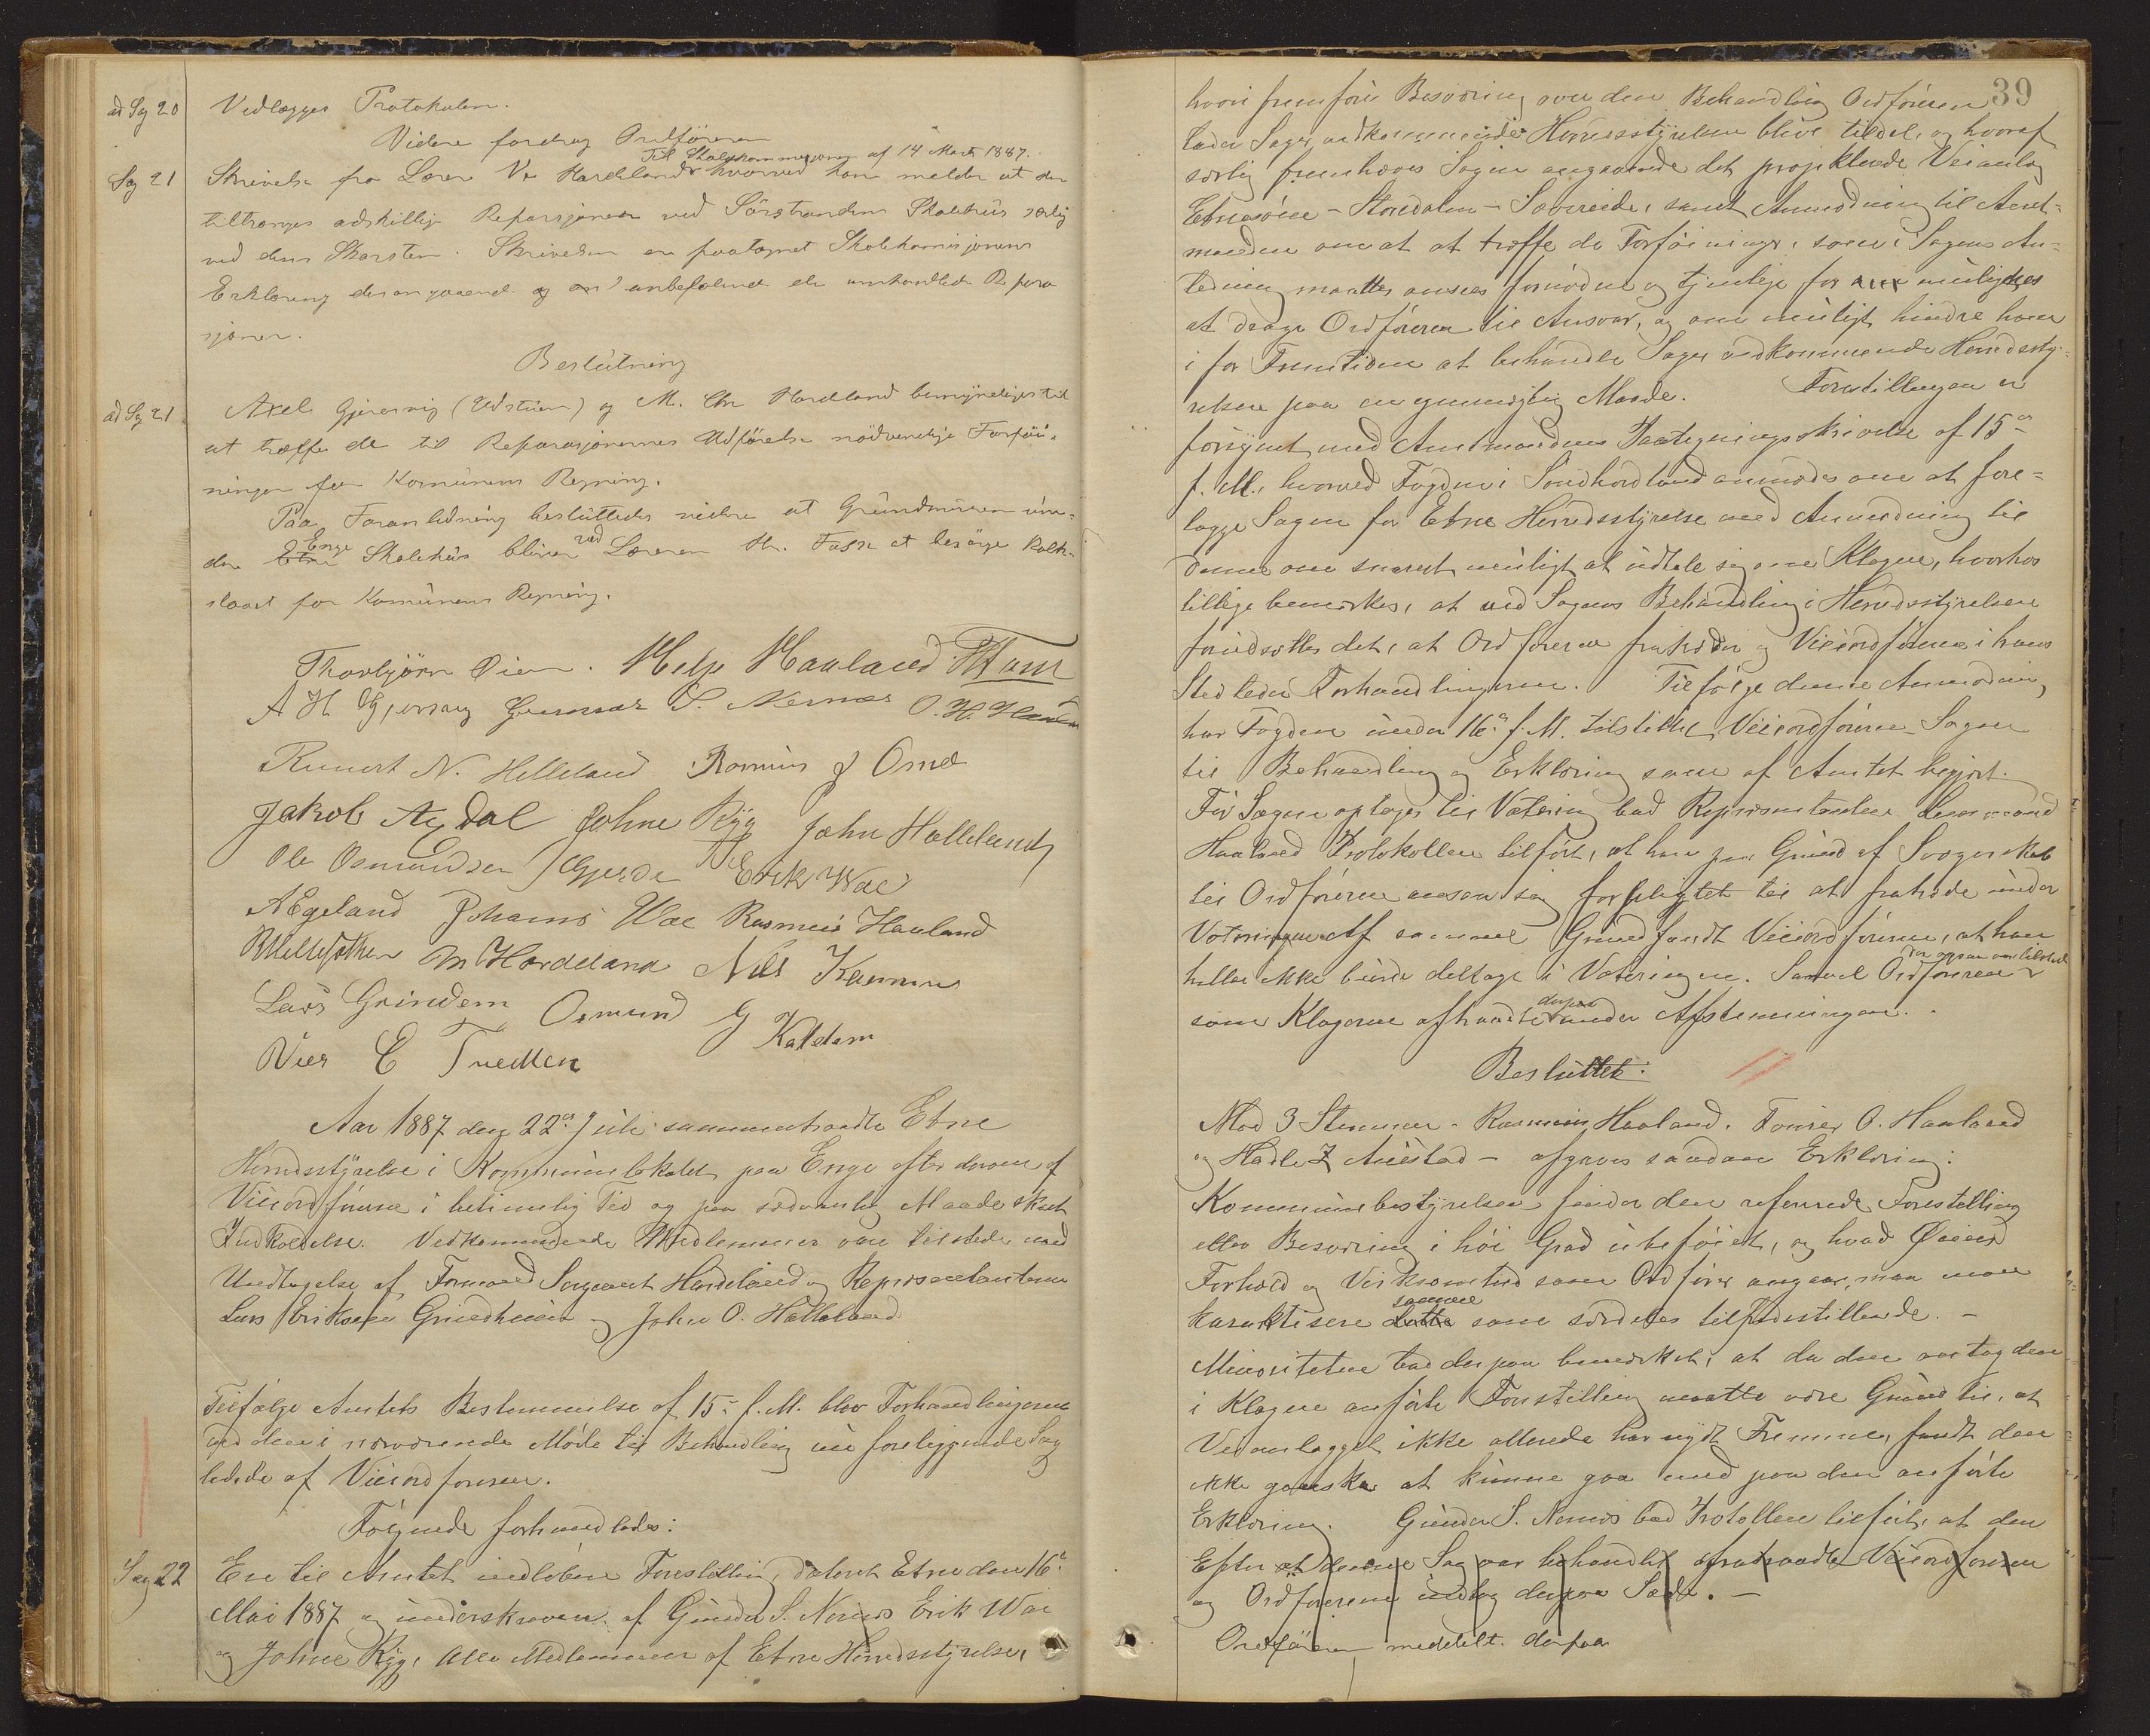 ad Sag 20 Vedlægges Protokolen.
Videre foredrog Ordføreren
Til Skolekommisjonen af 14 Marts 1887.
Sag 21 Skrivelse fra Lærer Hardeland hvorved han melder at der
tiltrænges adskillige Reparasjoner ved Sörstrandens Skolehus særlig
ved dens Skorsten. Skrivelsen er paategnet Skolekomisjonens
Erklæring desangaaende og anbefalende de omhandlede Repara
sjoner.
Beslutning
ad Sag 21 Axel Gjersvig (Udstuen) og M. Chr Hardeland bemyndiges til
at træffe de til Reparasjonernes Udförelse nödvendige Forföi-
ninger for Komunens Regning.
Paa Foranledning besluttedes videre at Grundmuren un-
der Etne Enge Skolehus bliver ved Læreren Hr. Fosse at besörge kalk-
slaaet for Komunens Regning.
Thorbjörn Öien. Helje Haaland
A H Gjersvig Gunnar S. Nernæs O. H. Haaland
Knut N. Helleland Rasmus J Omde
Jakob Aydal Johne Rygg John Halleland
Ole Osmundsen Gjerde Erik Wae
A Egeland Johanis Wae Rasmus Haaland
M Hardeland Nils
Lars Grindem Osmund G Kaldem
E Tvedten
Aar 1887 den 22de Juli sammentraadte Etne
Herredsstyrelse i Kommunelokalet paa Enge efter derom af
Viceordføreren i betimelig Tid og paa sædvanlig Maade skeet
Indkaldelse. Vedkommende Medlemmer vare tilstede med
Undtagelse af Formand Sergeant Hardeland og Repræsentanterne
Lars Eriksen Grindheim og John O. Halleland
Tilfølge Amtets Bestemmelse af 15de f. M. blev Forhandlingerne
ved den i nærværende Møde til Behandling nu foreliggende Sag
ledede af Viceordføreren.
Følgende forhandledes:
Sag 22 En til Amtet indløben Forestilling, dateret Etne den 16de
Mai 1887 og underskreven af Gunder S. Nernæs Erik Wae
og Johne Rygg, alle Medlemmer af Etne Herredsstyrelse,
39
hvori fremføres Besværing over den Behandling Ordføreren
lader Sager vedkommende Herredsstyrelsen blive tildel, og hvoraf
særlig fremhæves Sagen angaaende det projekterede Veianlæg
Etnesøen - Stordalen - Søvereide, samt Anmodning til Amt-
manden om at at træffe de Forføininger, som i Sagens An-
ledning maatte ansees fornødne og tjenlige for muligens
at drage Ordføreren til Ansvar, og om muligt hindre ham
i for Fremtiden at behandle Sager vedkommende Herredssty-
relsen paa en egenmægtig Maade. Forestillingen er
forsynet med Amtmandens Paategningsskrivelse af 15de
f. M., hvorved Fogden i Søndhordland anmodes om at fore-
lægge Sagen for Etne Herredsstyrelse med Anmodning til
denne om snarest muligt at udtale sig om Klagen, hvorhos
tillige bemærkes, at ved Sagens Behandling i Herredsstyrelsen
forudsættes det, at Ordføreren fratræder og Viceordføreren i hans
Sted leder Forhandlingerne. Tilfølge denne Anmodning,
har Fogden under 16de f. M. tilstillet Viceordføreren Sagen
til Behandling og Erklæring som af Amtet begjært.
Før Sagen optages til Votering bad Repræsentanten Lensmand
Haaland Protokollen tilført, at han paa Grund af Svogerskab
til Ordføreren ansaa sig forpligtet til at fratræde under
Voteringen. Af samme Grund fandt Viceordføreren, at han
heller ikke burde deltage i Voteringen. Samt Ordføreren der ogsaa var tilstede
som Klagerne aftraadte derpaa under Afstemningen.
Besluttet:
Mod 3 Stemmer - Rasmus Haaland, Tønnes O. Haaland
og Hadle Z Auestad - afgaves saadan Erklæring:
Kommunebestyrelsen finder den refererede Forestilling
eller Besværing i høi Grad ubeføiet, og hvad Øiens
Forhold og Virksomhed som Ordfører angaar, maa man
karaktisere dette samme som særdeles tilfredsstillende. -
Minoriteten bad derpaa bemærket, at da den antog den
i Klagen anførte Forestilling maatte være Grund til, at
Veianlægget ikke allerede har nydt Fremme, fandt den
ikke ganske at kunne gaa med paa den anførte
Erklæring. Gunder S. Nernæs bad Protollen tilført, at den
Efter at denne Sag var behandlet afratraadte Viceordføreren
og Ordføreren indtog derpaa Sæde. -
Ordføreren meddelt. derpaa